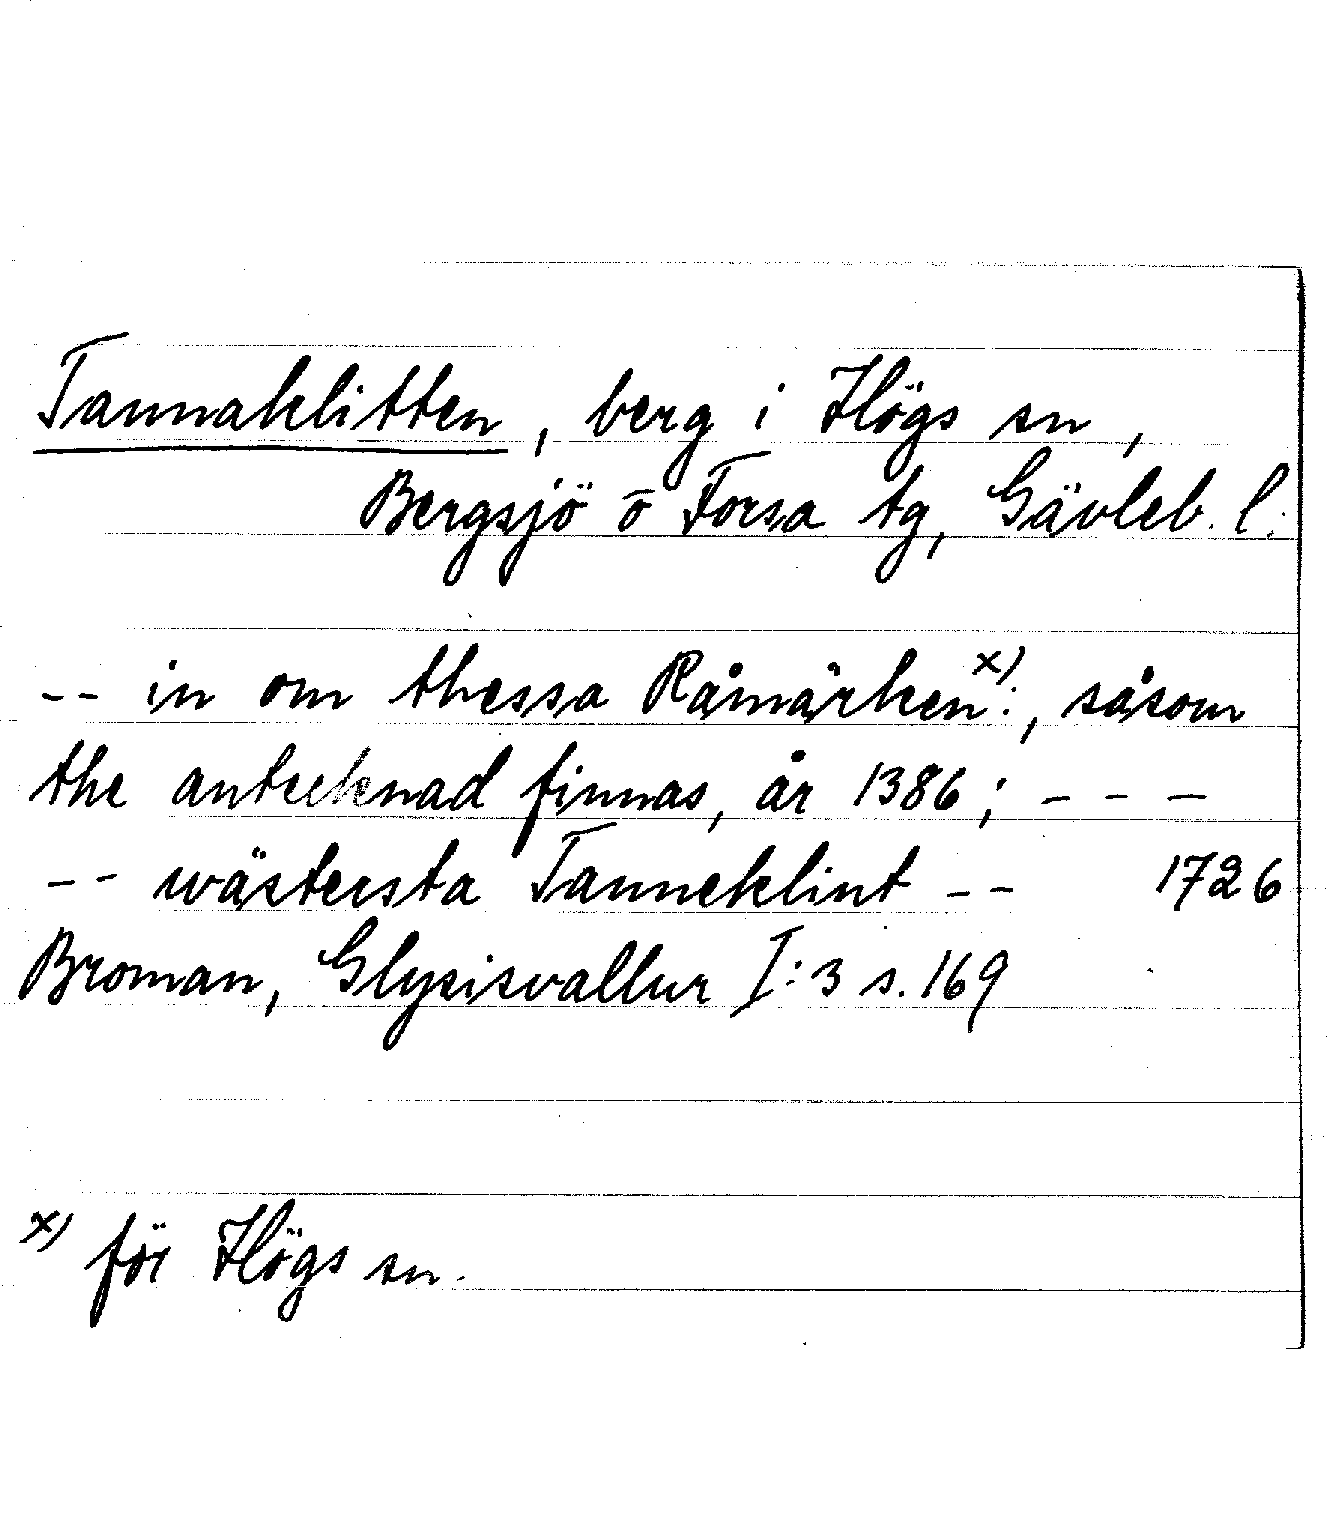 Tannaklitten, berg i Högs sn,
Bergsjö o Forsa tg, Gävleb. l.
-- in om thessa Råmärken x):, såsom
the antecknad finnas, år 1386; - - -
-- wästersta Tanneklint -- 1726
Broman, Glysisvallur I:3 s. 169
x) för Högs sn.